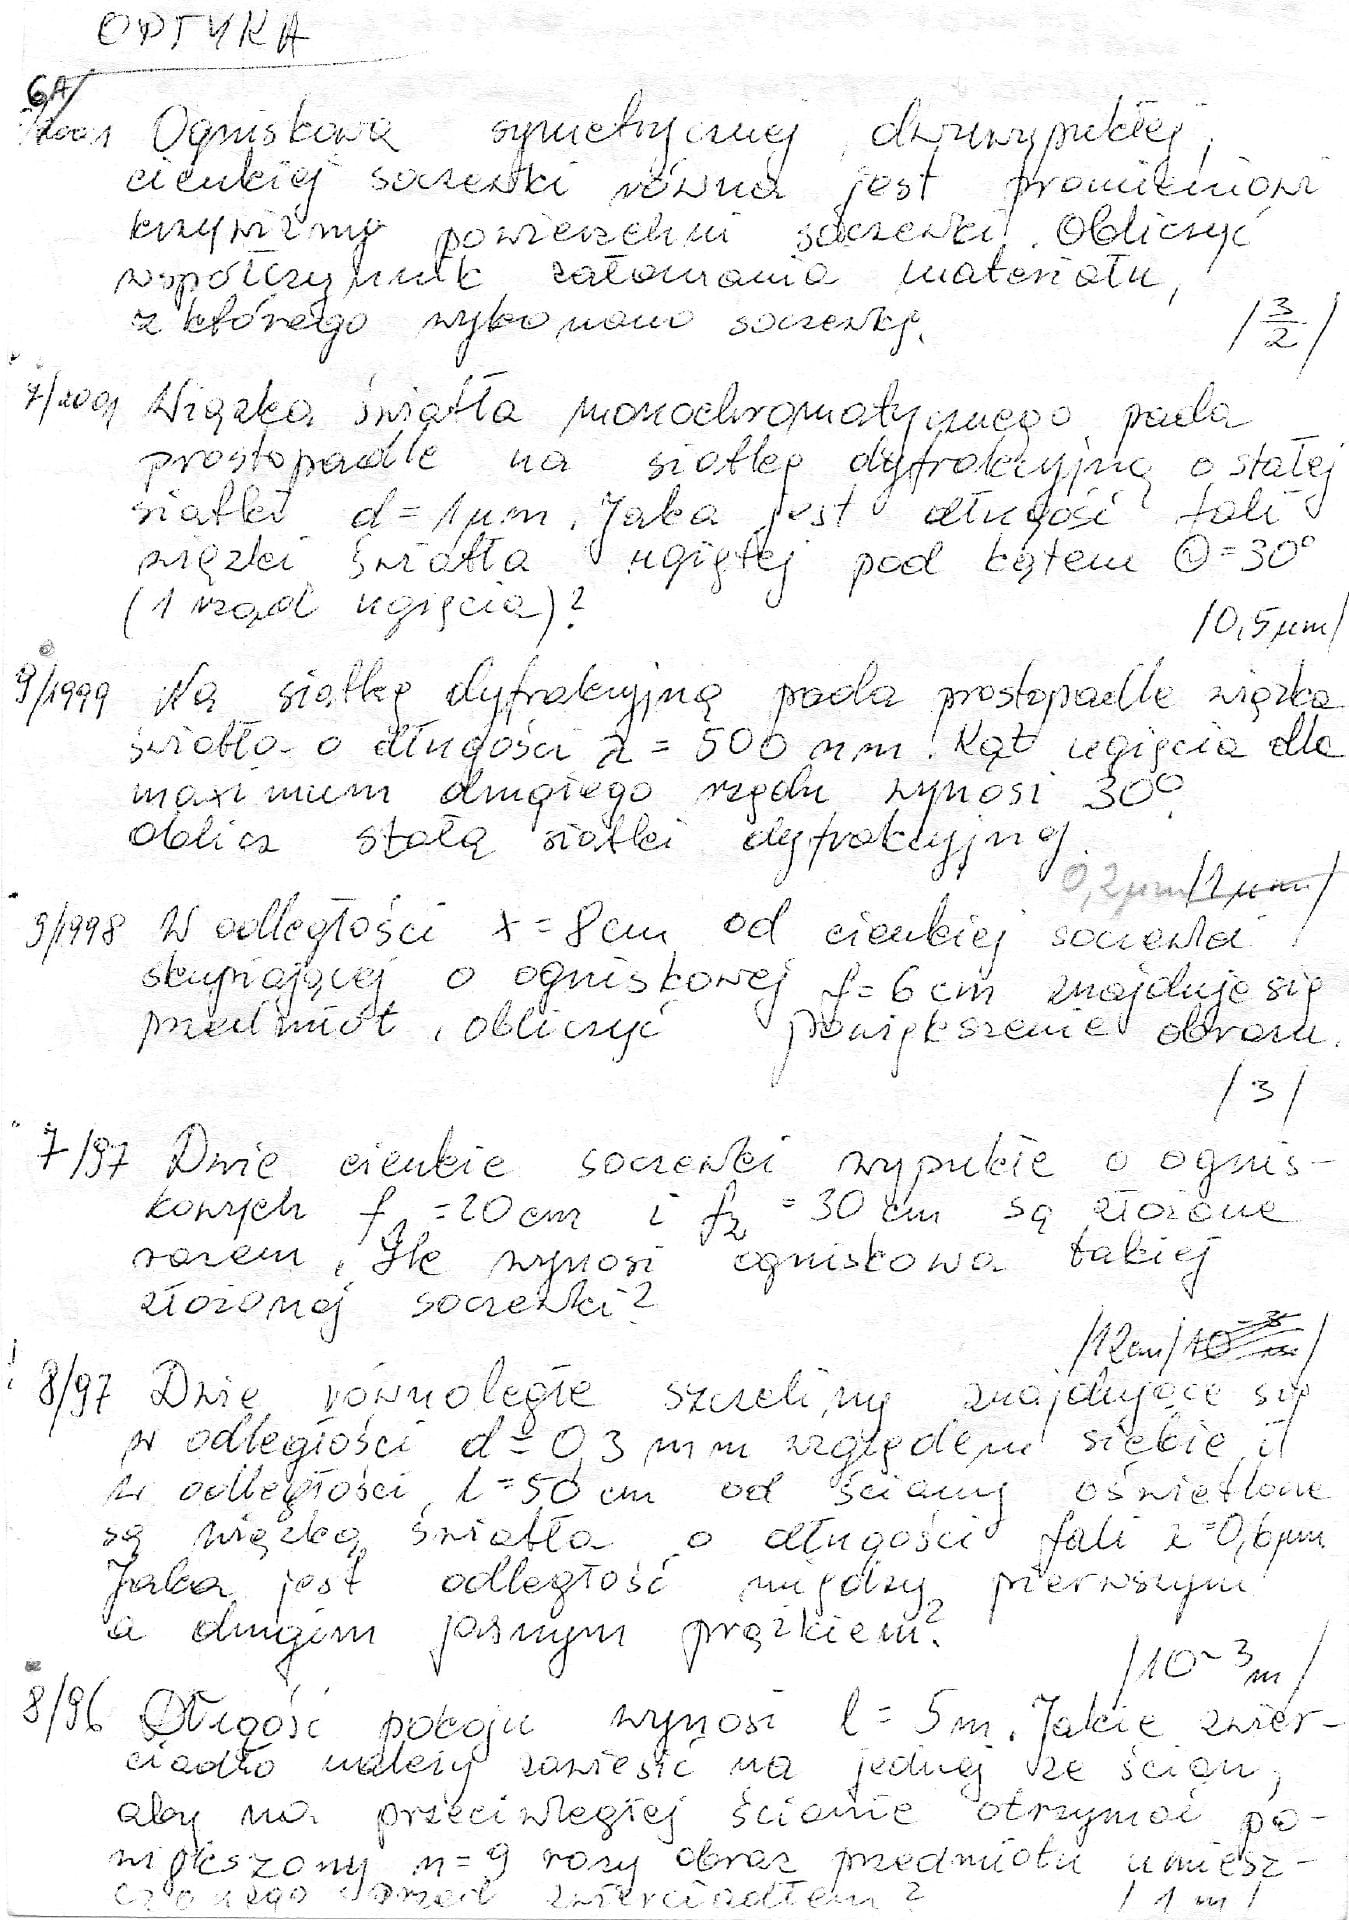 OPTYKA
6A/
/2001 Ogniskowa symetrycznej, dwuwypukłej,
cienkiej soczewki równa jest promieniowi
krzywizny powierzchni soczewki. Obliczyć
współczynnik załamania materiału,
z którego wykonano soczewkę. /3/2/
7/2001 Wiązka światła monochromatycznego pada
prostopadle na siatkę dyfrakcyjną o stałej
siatki d = 1 μm. Jaka jest długość fali
wiązki światła ugiętej pod kątem Θ = 30°
(1 rząd ugięcia)? /0,5 μm/
9/1999 Na siatkę dyfrakcyjną pada prostopadle wiązka
światła o długości λ = 500 nm. Kąt ugięcia dla
maximum drugiego rzędu wynosi 30°.
Oblicz stałą siatki dyfrakcyjnej.
0,2 μm /1 μm/
9/1998 W odległości x = 8 cm od cienkiej soczewki
skupiającej o ogniskowej f = 6 cm znajduje się
przedmiot, obliczyć powiększenie obrazu.
/3/
7/97 Dwie cienkie soczewki wypukłe o ognis-
kowych f1 = 20 cm i f2 = 30 cm są złożone
razem. Ile wynosi ogniskowa takiej
złożonej soczewki?
/12 cm/ 10-3 m/
! 8/97 Dwie równoległe szczeliny znajdujące się
w odległości d = 0,3 mm względem siebie i
w odległości l = 50 cm od ściany oświetlone
są wiązką światła o długości fali λ = 0,6 μm
Jaka jest odległość między pierwszym
a drugim jasnym prążkiem?
/10-3 m/
8/96 Długość pokoju wynosi l = 5 m. Jakie zwier-
ciadło należy zawiesić na jednej ze ścian,
aby na przeciwległej ścianie otrzymać po-
większony n = 9 razy obraz przedmiotu umiesz-
czonego przed zwierciadłem? /1 m/